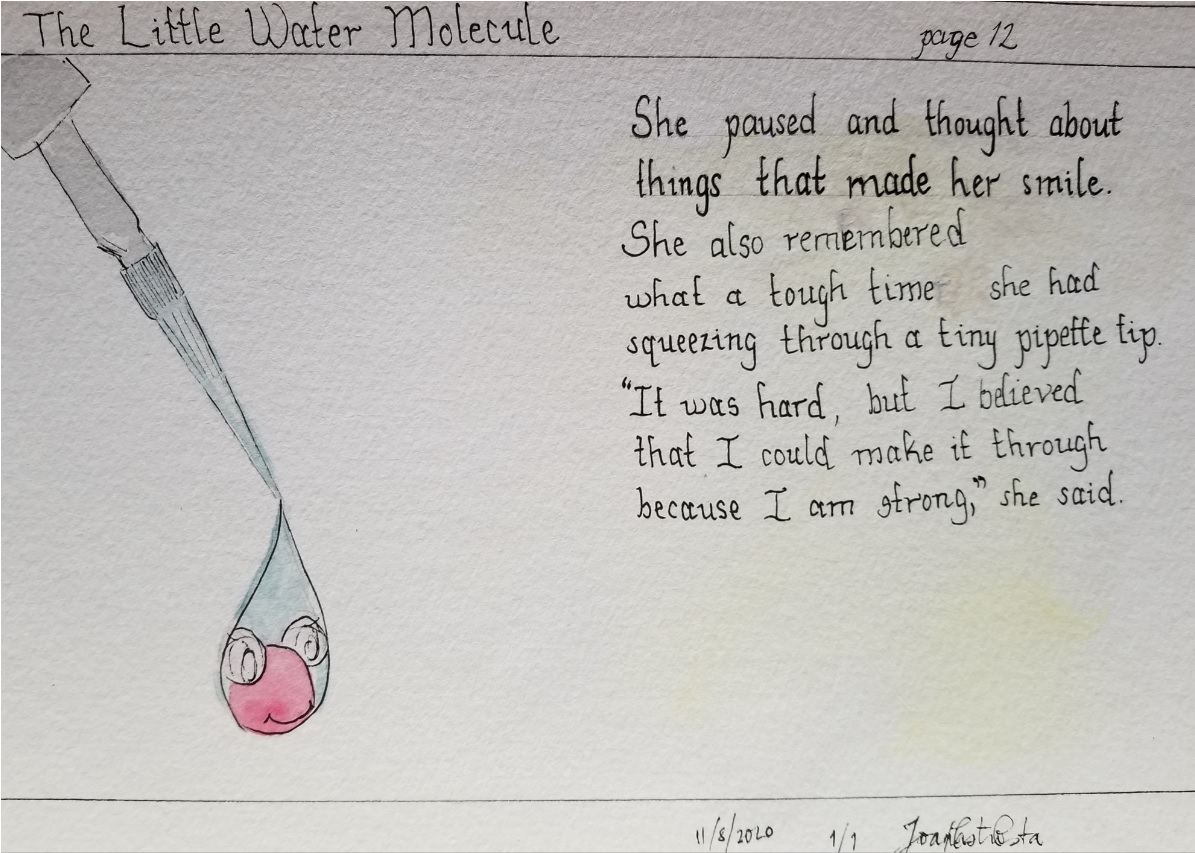 The Little Water Molecule
page 12
She paused and thought about
things that made her smile.
She also remembered
what a tough time she had
squeezing through a tiny pipette tip.
"It was hard, but I believed
that I could make it through
because I am strong," she said.
11/8/2020 1/1